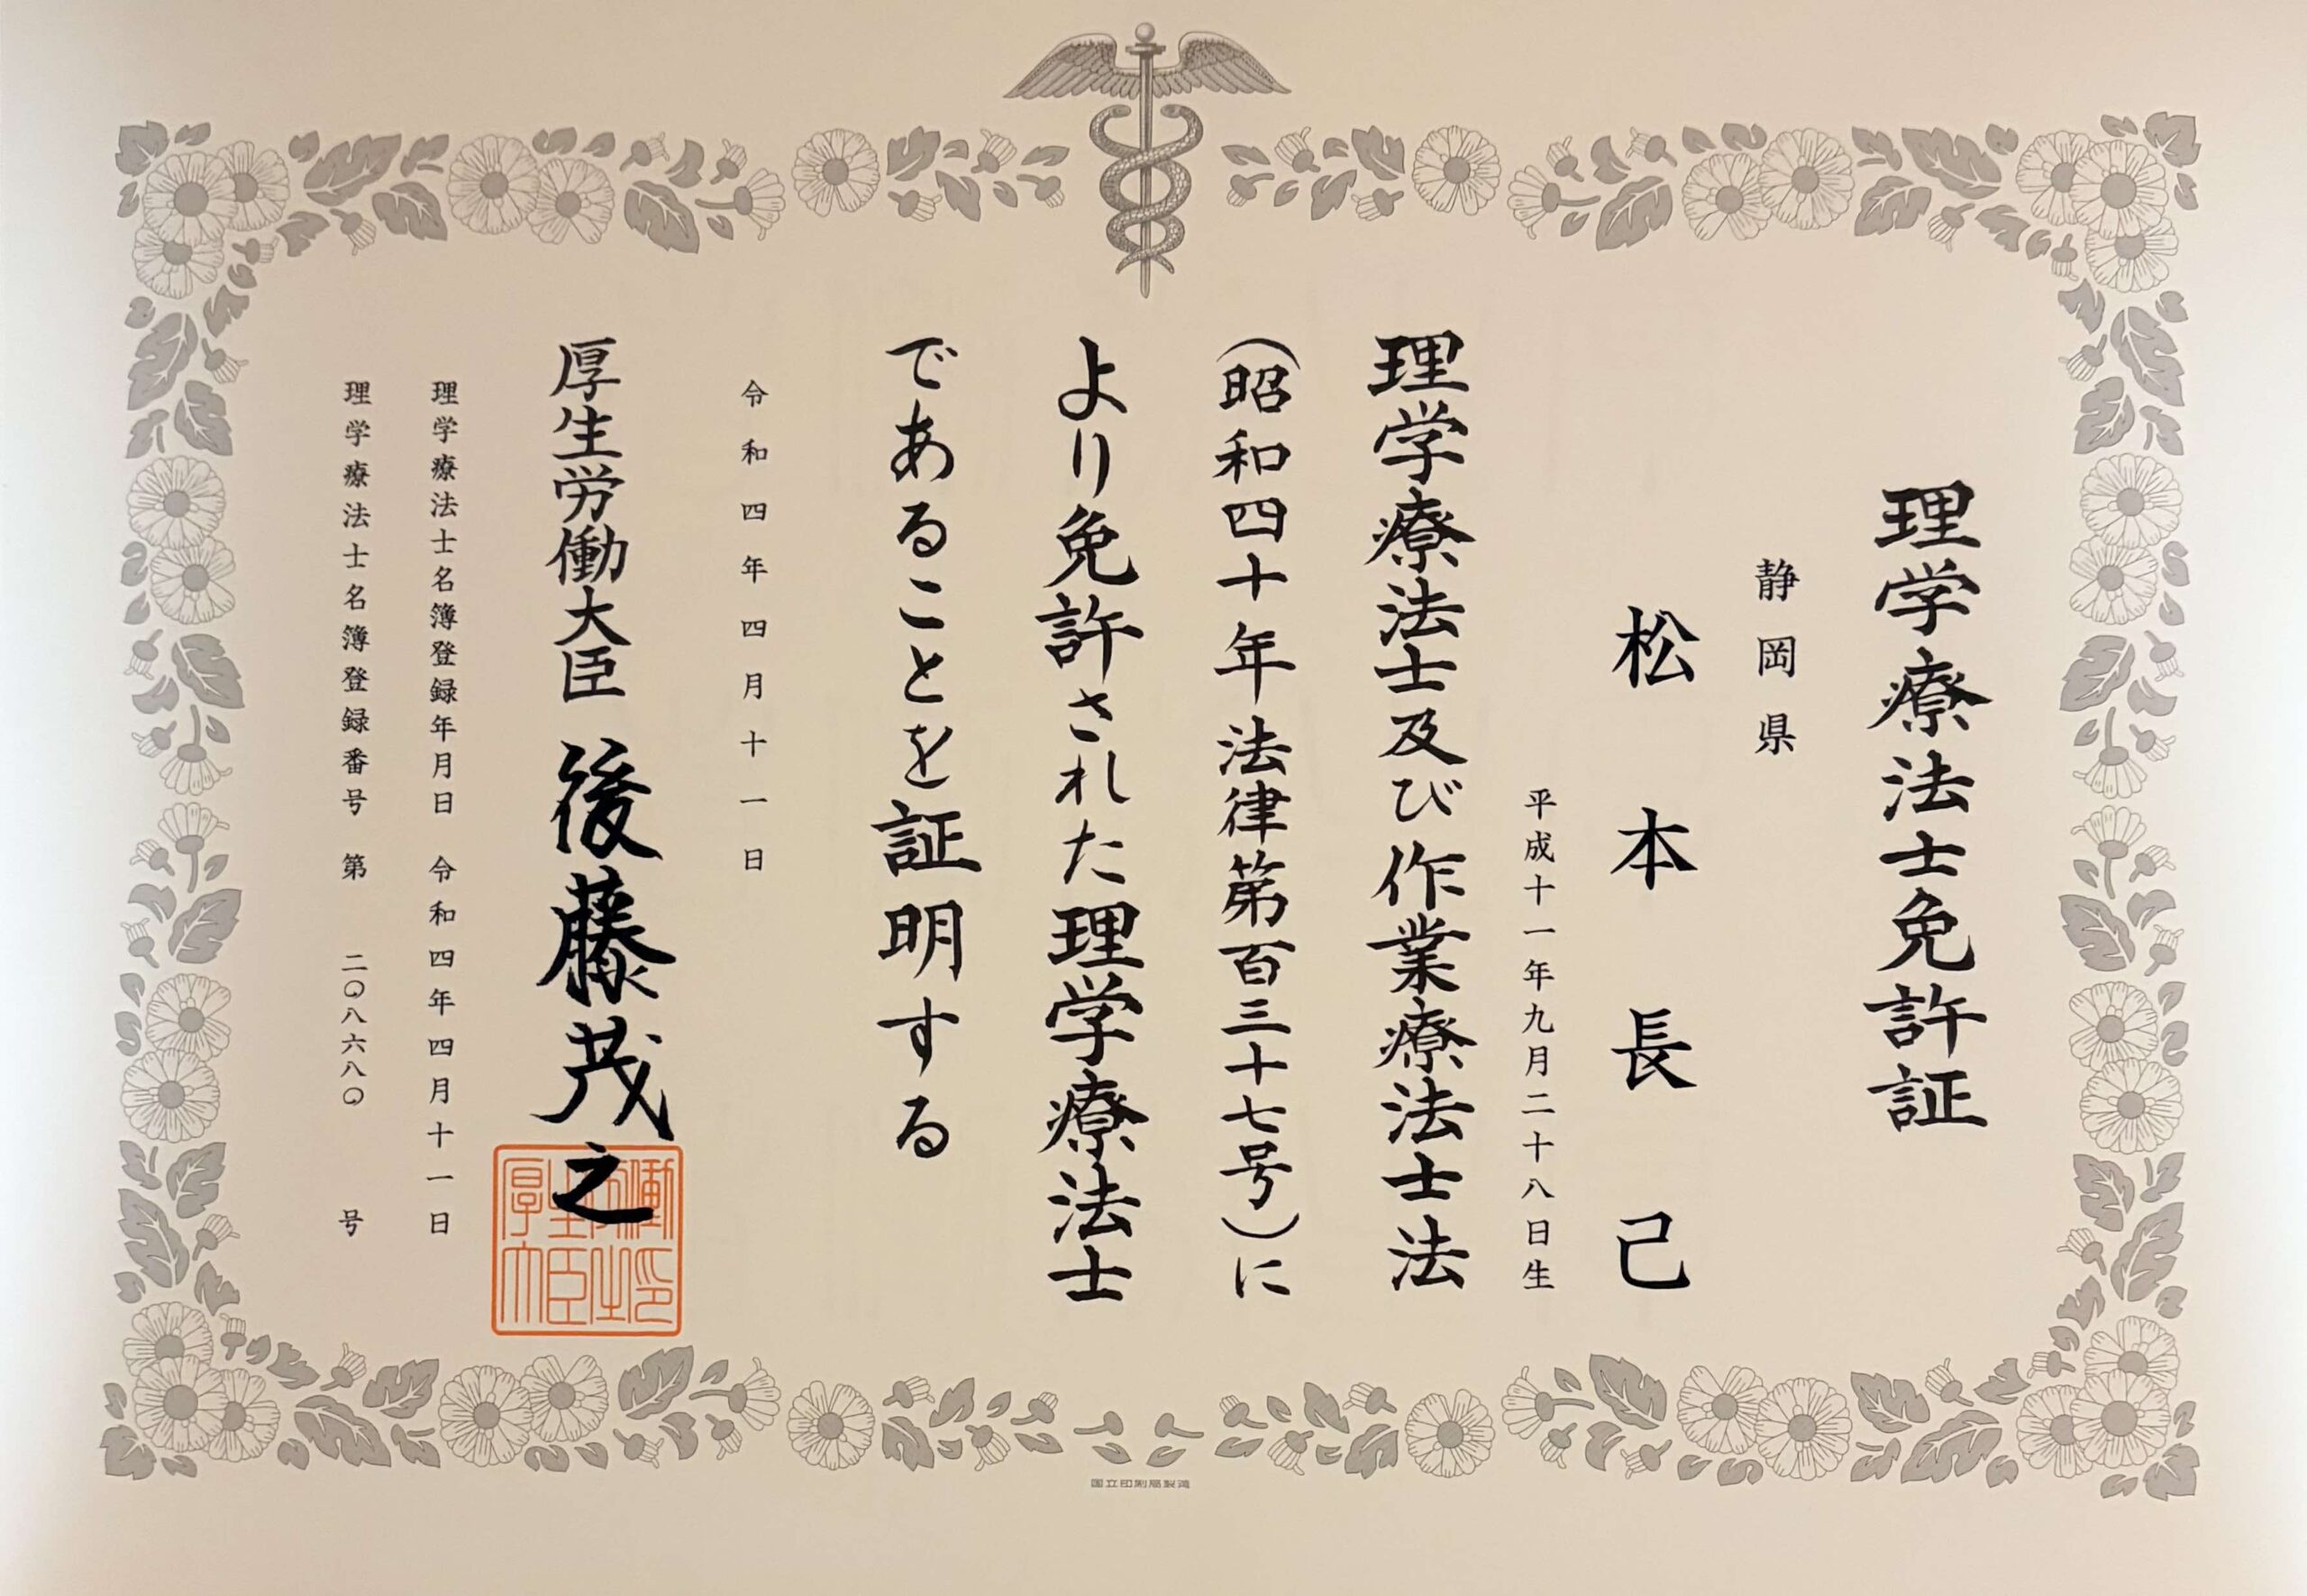 理学療法士免許証
静岡県
松本長己
平成十一年九月二十八日生
理学療法士及び作業療法士法
(昭和四十年法律第百三十七号)に
より免許された理学療法士
であることを証明する
令和四年四月十一日
厚生労働大臣 後藤茂之
理学療法士名簿登録年月日 令和四年四月十一日
理学療法士名簿登録番号 第 二〇八六八〇 号
国立印刷局製造